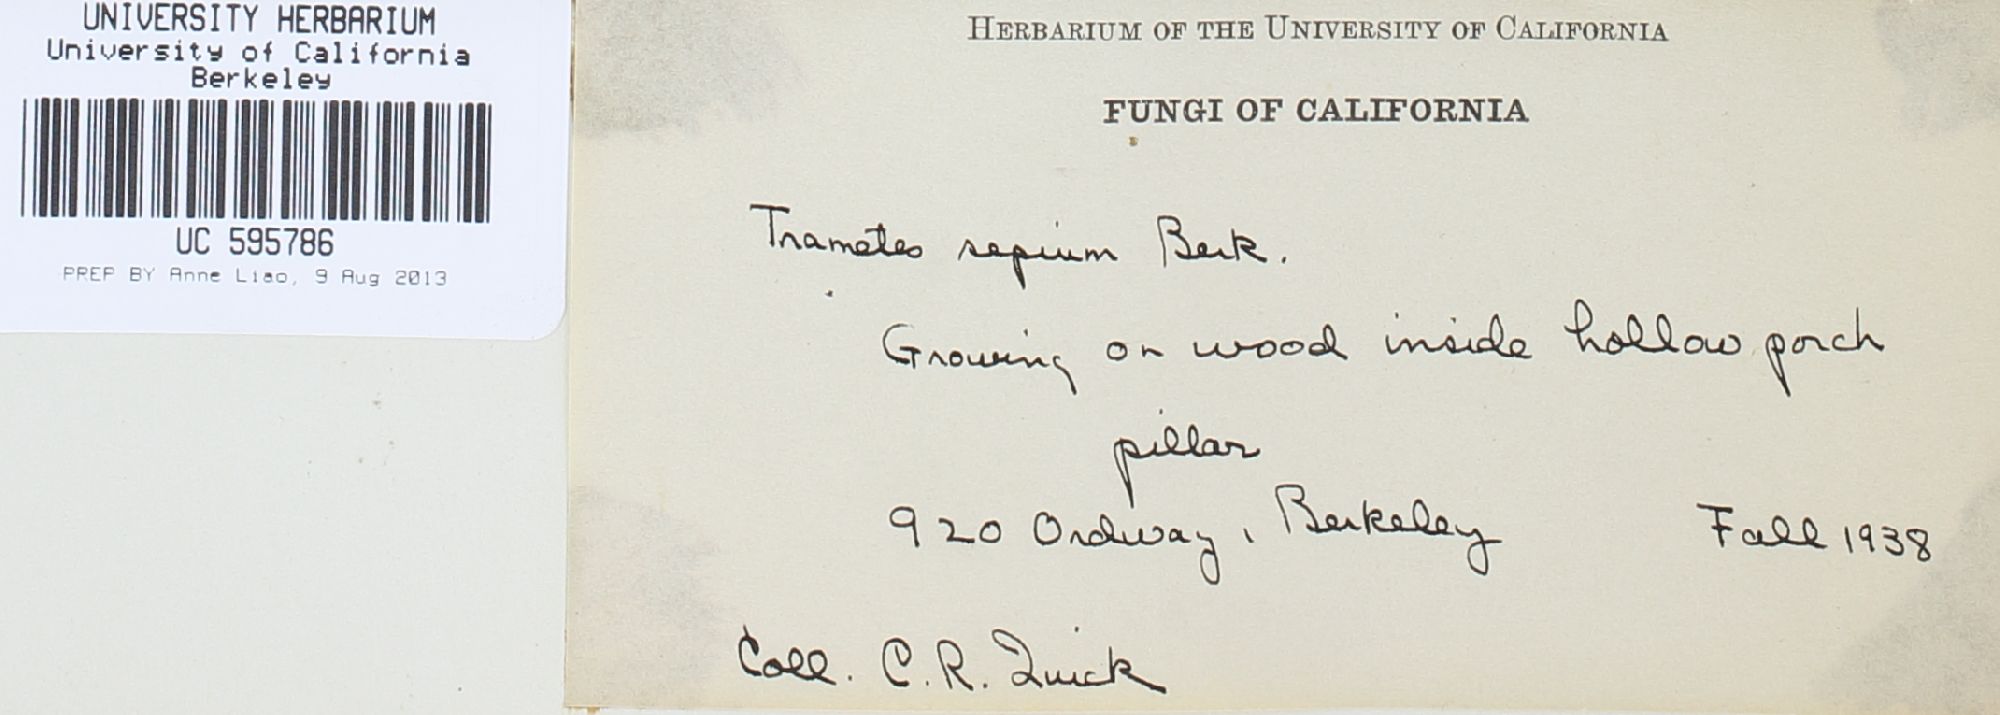 UNIVERSITY HERBARIUM
University of California
Berkeley
UC 595786
PREP BY Anne Liao, 9 Aug 2013
HERBARIUM OF THE UNIVERSITY OF CALIFORNIA
FUNGI OF CALIFORNIA
Trametes sepium Berk.
Growing on wood inside hollow porch
pillar
920 Ordway, Berkeley Fall 1938
Coll. C.R. Quick